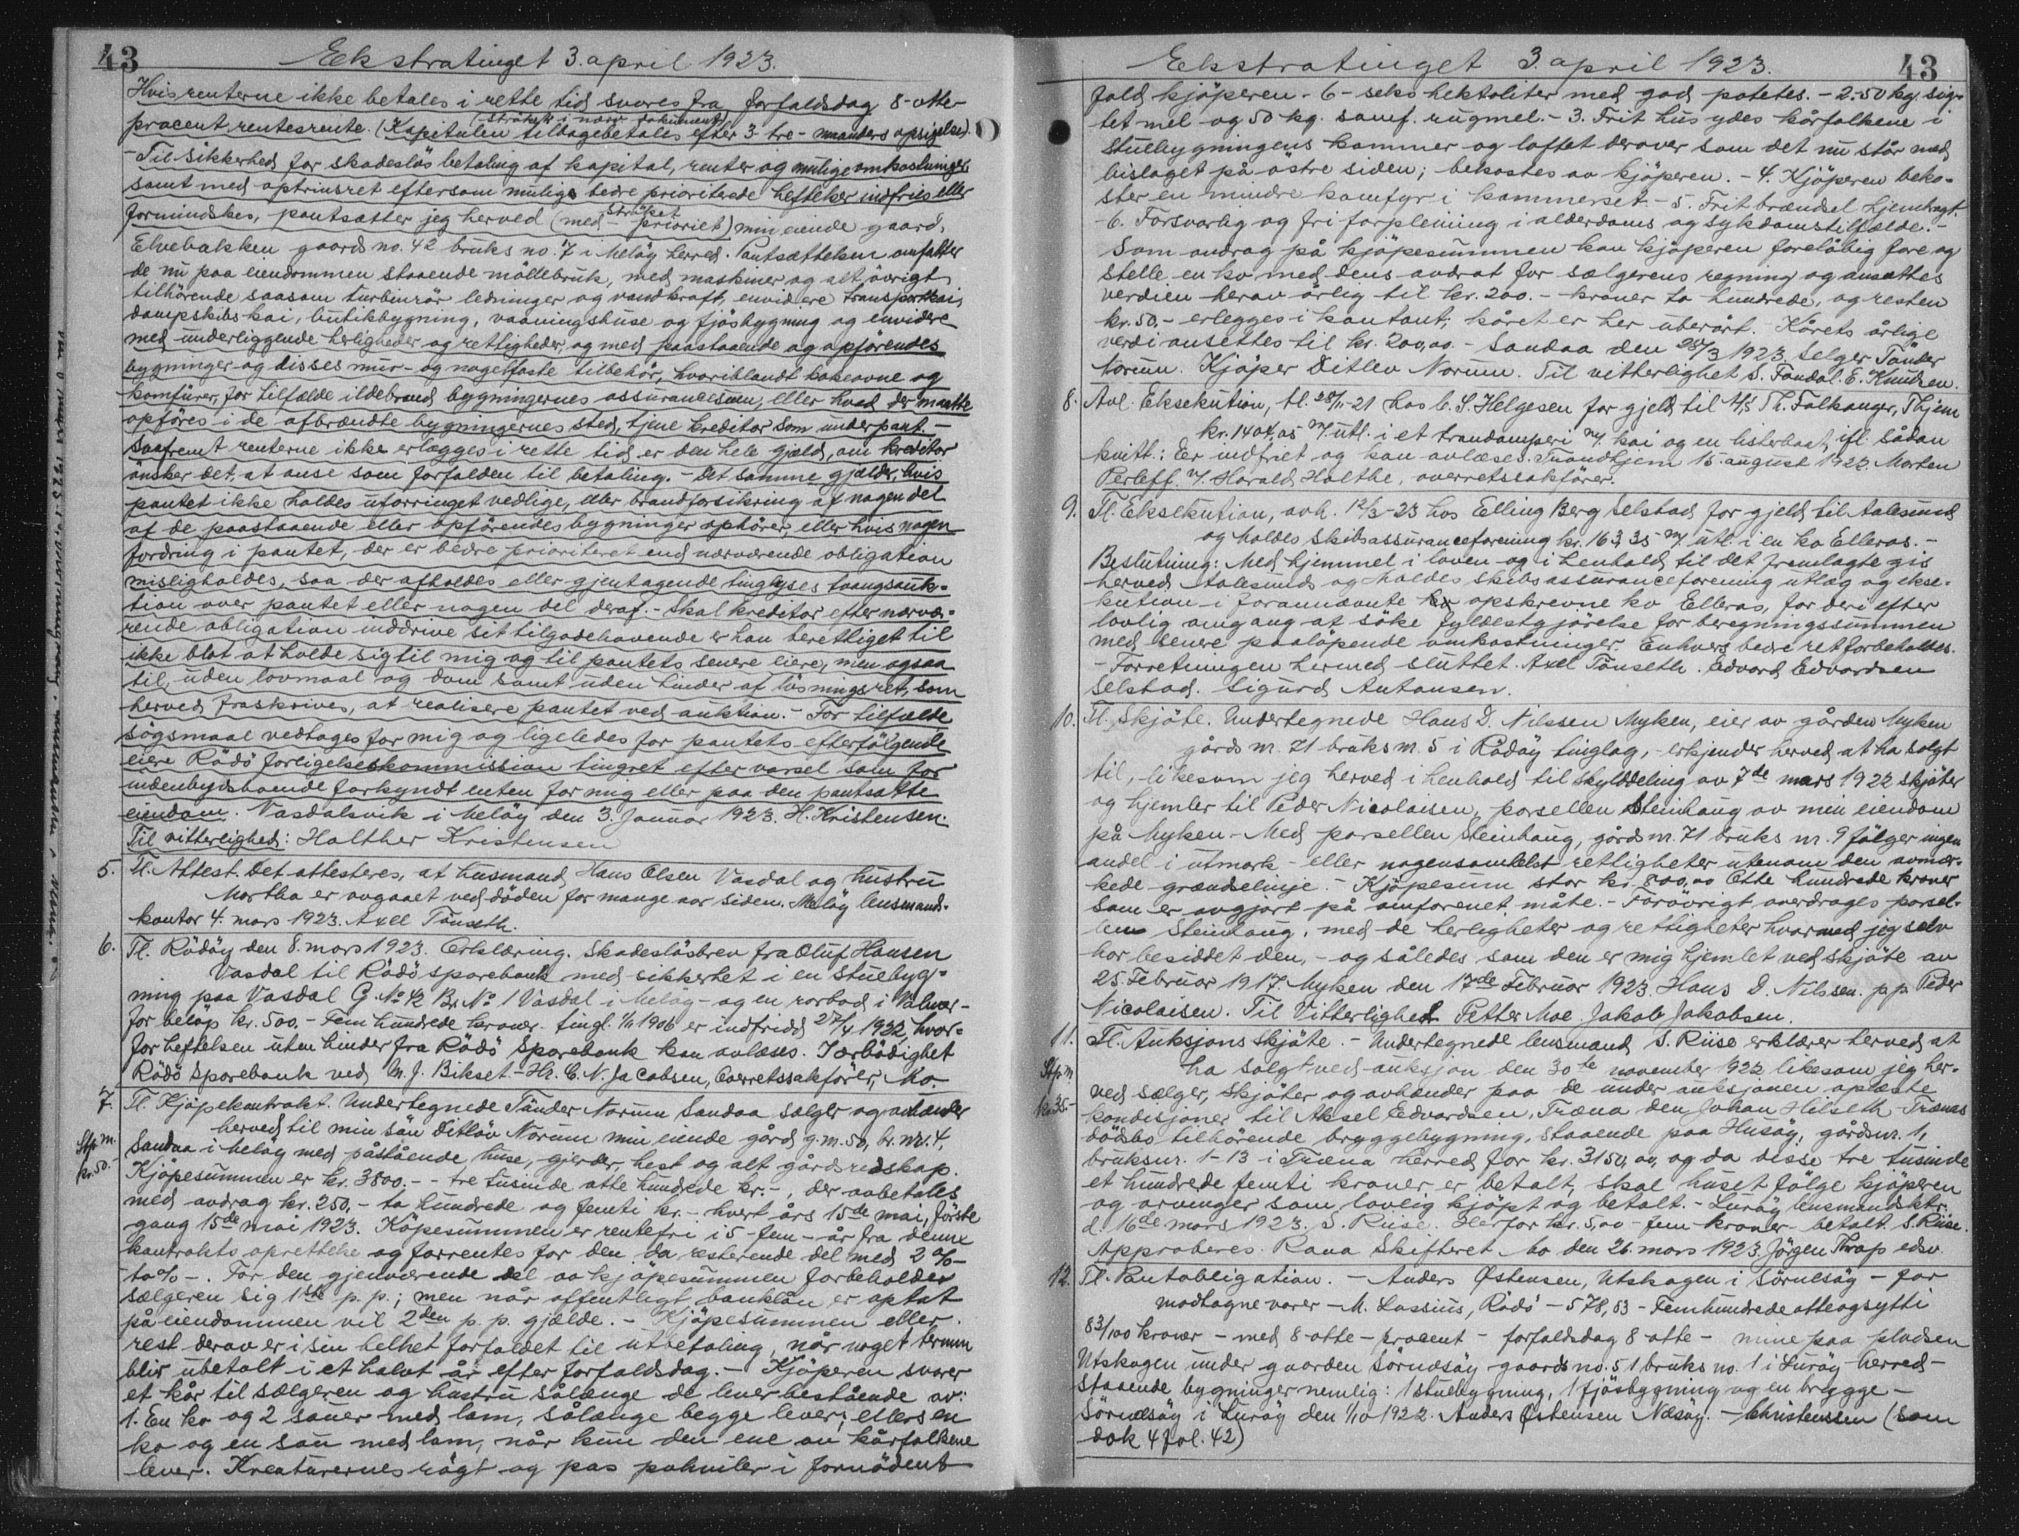 43
Ekstratinget 3. april 1923.
Hvis renterne ikke betales i rette tid svares fra forfaldsdag 8-otte-
procent rentesrente. (Kapitalen tilbagebetales efter 3-tre-maaneders opsigelse).
(strøket i nærv. dokument)
Til sikkerhed for skadeslös betaling af kapital, renter og mulige omkostninger
samt med optrinsret eftersom mulige bedre prioriterede heftelser indfries eller
formindskes, pantsætter jeg herved (med - prioritet) min eiende gaard,
strøket
Elvebakken gaards no. 42 bruks no. 7 i Melöy herred. Pantsættelsen omfatter
de nu paa eiendommen staaende möllebruk, med maskiner og alt övrigt
tilhörende saasom turbinrör ledninger og vandkraft, envidere transportkai,
dampskibskai, butikbygning, vaaningshuse og fjösbygning og envidere
med underliggende herligheder og rettigheder, og med paastaaende og opförendes
bygninger og disses mur- og nagelfaste tilbehör, hvoriblandt kakeovne og
komfürer, for tilfælde ildebrand bygningernes assurancesum, eller hvad der maatte
opföres i de afbrændte bygningernes sted, tjene kreditor som underpant.-
Saafremt renterne ikke erlægges i rette tid er den hele gjæld, om kreditor
önsker det, at anse som forfalden til betaling. - Det samme gjælder, hvis
pantet ikke holdes uforringet vedlige, eller brandforsikring af nogen del
af de paastaaende eller opförendes bygninger ophörer, eller hvis nogen
fordring i pantet, der er bedre prioriteret end nærværende obligation
misligholdes, saa der afholdes eller gjentagende tinglyses tvangsauk-
tion over pantet eller nogen del deraf. - Skal kreditor efter nærvæ-
rende obligation inddrive sit tilgodehavende er han berettiget til
ikke blot at holde sig til mig og til pantets senere eiere, men ogsaa
til, uden lovmaal og dom samt uden hinder af lösningsret, som
herved fraskrives, at realisere pantet ved auktion. - For tilfælde
sögsmaal vedtages for mig og ligeledes for pantets efterfölgende
eiere Rödö forligelseskommission tingret efter varsel som for
indenbygdsboende forkyndt enten for mig eller paa den pantsatte
eiendom. Vasdalsvik i Melöy den 3. Januar 1923. H. Kristensen.
Til vitterlighed: Halther Kristensen
5. Tl. Attest. Det attesteres, at husmand Hans Olsen Vasdal og hustru
Martha er avgaaet ved döden for mange aar siden. Melöy lensmands-
kontor 4. mars 1923. Axel Tönseth.
6. Tl. Rödöy den 8. mars 1923. Erklæring. Skadeslösbrev fra Oluf Hansen
Vasdal til Rödö sparebank med sikkerhet i en stuebyg-
ning paa Vasdal G. No 42 Br. No 1 Vasdal i Melöy - og en rorbod i Valvær-
for beløp kr. 500.- Fem hundrede kroner. tingl. 1/11 1906 er indfridd 27/4 1922 hvor-
for heftelsen uten hinder fra Rödö Sparebank kan avlæses. I ærbödighet
Rödö Sparebank ved M. J. Bikset - Hr. C. N. Jacobsen, Overretssakförer, Mo.
7. Tl. Kjöpekontrakt. Undertegnede Tönder Norum Sandaa sælger og avhænder
herved til min sön Ditlöv Norum min eiende gård g. nr. 50, br. nr. 4,
Stp. m.
kr. 50.-
Sandaa i Melöy med påstående huse, gjerder, hest og alt gårdsredskap.
Kjöpesummen er kr. 3800.- - tre tusinde otte hundrede kr.-, der avbetales
med avdrag kr. 250,- to hundrede og femti kr.- hvert års 15de mai, förste
gang 15de mai 1923. Köpesummen er rentefri i 5-fem-år fra denne
kontrakts oprettelse og forrentes for den da resterende del med 2 o/o-
to o/o -. For den gjenværende del av kjöpesummen forbeholder
sælgeren sig 1ste p. p.; men når offentligt banklån er optat
på eiendommen vil 2den p. p. gjælde. - Kjöpesummen eller
rest derav er i sin helhet forfaldet til utbetaling, når noget termin
blir ubetalt i et halvt år efter forfaldsdag. - Kjöperen svarer
et kår til sælgeren og hustru sålænge de lever bestående av:
1. En ko og 2 sauer med lam, sålænge begge lever; ellers en
ko og en sau med lam, når kun den ene av kårfolkene
lever. Kreaturernes rögt og pas påhviler i fornödent
43
Ekstratinget 3. april 1923.
fald kjöperen. - 6-seks hektoliter med god potetes. - 2. 50 kg. sig-
tet mel og 50 kg. samf. rugmel. - 3. Frit hus ydes kårfolkene i
stuebygningens kammer og loftet derover som det nu står med
bislaget på östre siden; bekostes av kjöperen. - 4. Kjöperen beko-
ster en mindre komfyr i kammerset. - 5. Frit brændsel hjembragt.
- 6. Forsvarlig og fri forpleining i alderdoms og sykdomstilfælde. -
Som avdrag på kjöpesummen kan kjöperen forelöbig fore og
stelle en ko med dens avdrot for sælgerens regning og ansættes
verdien herav årlig til kr. 200.- kroner to hundrede, og resten
kr. 50.- erlegges i kontant; kåret er her uberört. Kårets årlige
verdi ansettes til kr. 200,00. - Sandaa den 28/3 1923. Selger Tönder
Norum. Kjöper Ditlev Norum. Til vitterlighet S. Fondal. E. Knudsen.
8. Avl. Eksekution, tl. 28/11-21 hos C. S. Helgesen for gjeld til A/S Th. Falkanger, Thjem
kr. 1404,05 m/ utl. i et trandamperi m/ kai og en listerbaat, ifl. sådan
kvitt.: Er indfriet og kan avlæses. Trondhjem 15. august 1922. Morten
Perleff. v/ Harald Holthe, overretssakförer.
9. Tl. Eksekution, avh. 12/3-23 hos Elling Berg Selstad for gjeld til Aalesund
og Moldes skibsassuranceforening kr. 163,35 m/ utl. i en ko Elleros. -
Beslutning: Med hjemmel i loven og i henhold til det fremlagte gis
herved Aalesunds og Moldes skibsassuranceforening utlæg og ekse-
kution i forannævnte opskrevne ko Elleros, for deri efter
lovlig omgang at söke fyldestgjörelse for beregningssummen
med senere paalöpende omkostninger. Enhvers bedre ret forbeholdes.
- Forretningen hermed sluttet. Axel Tönseth. Edvard Edvardsen
Selstad. Sigurd Antonsen.
10. Tl. Skjöte. Undertegnede Hans D. Nilssen Myken, eier av gården Myken
gårds nr. 71 bruks nr. 5 i Rödöy tinglag, - erkjender herved at ha solgt
til, likesom jeg herved i henhold til skylddeling av 7de mars 1922 skjöter
og hjemler til Peder Nicolaisen, parsellen Steinhaug av min eiendom
på Myken - Med parsellen Steinhaug, gårds nr. 71 bruks nr. 9 fölger ingen
andel i utmark - eller nogensomhelst rettigheter utenom den avmær-
kede grændselinje. - Kjöpesum stor kr. 800,00 Otte hundrede kroner
som er avgjort på omforenet måte. - Forövrigt overdrages parsel-
len Steinhaug, med de herligheter og rettigheter hvormed jeg selv
har besiddet den, - og således som den er mig hjemlet ved skjöte av
25. Februar 1917. Myken den 17de Februar 1923. Hans D. Nilssen. p.p. Peder
Nicolaisen. Til Vitterlighet Petter Moe Jakob Jakobsen.
11. Tl. Auksjonsskjöte. - Undertegnede lensmand S. Riise erklærer herved at
ha solgt ved auksjon den 30te november 1922 likesom jeg her-
Stp. m.
kr. 35.-
ved sælger, skjöter og avhænder paa de under auksjonen oplæste
kondisjoner til Aksel Edvardsen, Træna den Johan Hilseth Trænas
dödsbo tilhörende bryggebygning, staaende paa Husöy, gårdsnr. 1,
bruksnr. 1-13 i Træna herred for kr. 3150,00, og da disse tre tusinde
et hundrede femti kroner er betalt, skal huset fölge kjöperen
og arvinger som lovlig kjöpt og betalt. - Luröy lensmandsktr.
d. 16de mars 1923. S. Riise. Herfor kr. 5,00 - fem kroner - betalt. S. Riise.
Approberes. Rana Skifteret Mo den 26. mars 1923. Jörgen Thrap edsv.
12. Tl. Pantobligation. - Anders Østensen, Utskagen i Sörnesöy - for
modtagne varer - M. Lassius, Rödö - 578,83 - Femhundredeotteogsytti
83/100 kroner - med 8-otte-procent - forfaldsdag 8-otte- mine paa pladsen
Utskagen under gaarden Sörnæsöy gaards no. 51 bruks no. 1 i Luröy herred -
staaende bygninger nemlig: 1 stuebygning, 1 fjösbygning og en brygge -
Sörnæsöy i Luröy den 1/10 1922. Anders Østensen Næsöy. - Christenssen (som
dok 4 fol. 42)